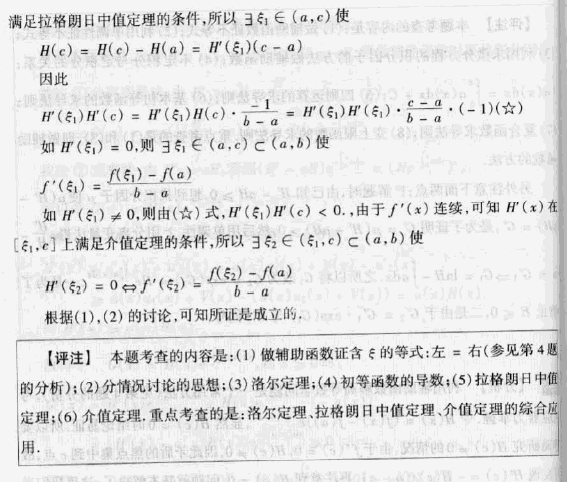 满足拉格朗日中值定理的条件,所以 ∃ξ₁∈(a,c) 使
H(c) = H(c) - H(a) = H′(ξ₁)(c - a)
因此
H′(ξ₁)H′(c) = H′(ξ₁)H(c)·\frac{-1}{b-a} = H′(ξ₁)H′(ξ₁)·\frac{c-a}{b-a}·(-1)(☆)
如 H′(ξ₁) = 0,则 ∃ξ₁∈(a,c)⊂(a,b) 使
f′(ξ₁) = \frac{f(ξ₁)-f(a)}{b-a}
如 H′(ξ₁) ≠ 0,则由(☆) 式,H′(ξ₁)H′(c) < 0.,由于 f′(x) 连续,可知 H′(x) 在
[ξ₁,c] 上满足介值定理的条件,所以 ∃ξ₂∈(ξ₁,c)⊂(a,b) 使
H′(ξ₂) = 0⇔f′(ξ₂) = \frac{f(ξ₂)-f(a)}{b-a}
根据(1),(2) 的讨论,可知所证是成立的.
【评注】 本题考查的内容是:(1) 做辅助函数证含 ξ 的等式:左 = 右(参见第 4 题
的分析);(2)分情况讨论的思想;(3) 洛尔定理;(4) 初等函数的导数;(5) 拉格朗日中值
定理;(6) 介值定理,重点考查的是:洛尔定理、拉格朗日中值定理、介值定理的综合应
用.